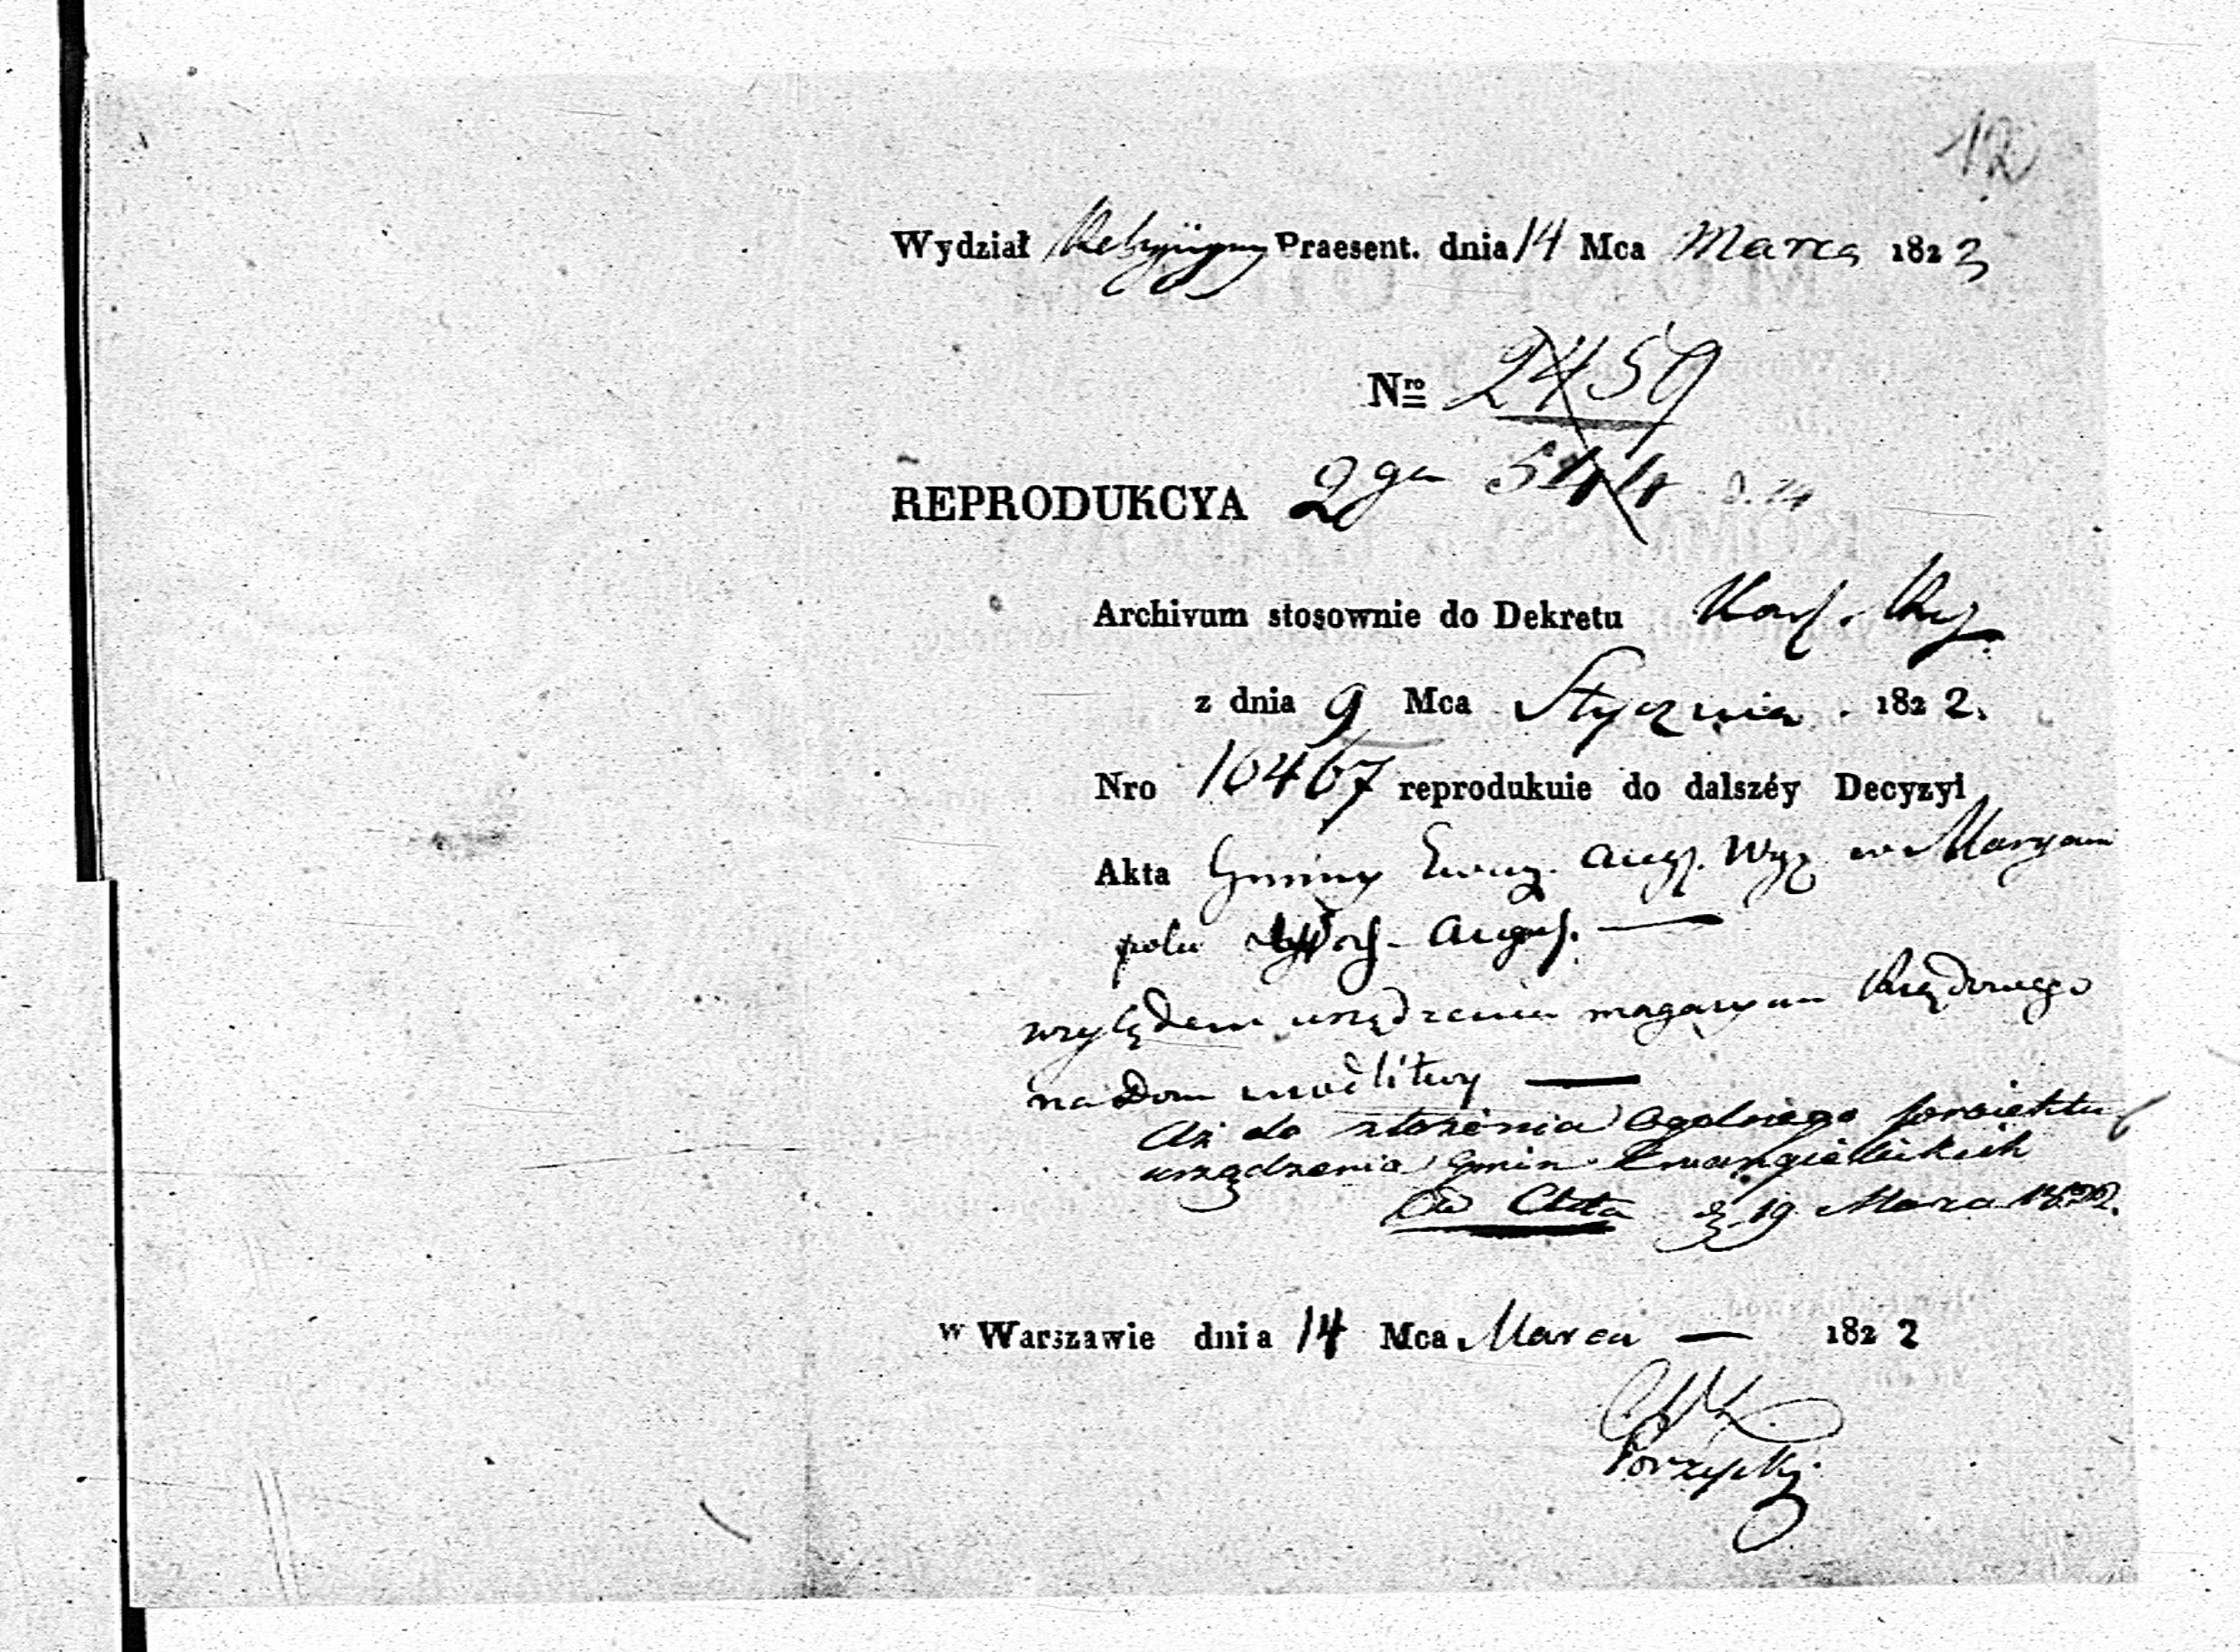 12
Wydział Religijny Praesent. dnia 14 Mca Marca 1822
Nro 2459
5144
REPRODUKCYA 2ga
Archivum stosownie do Dekretu
z dnia 9 Mca Stycznia 1822.
Nro 10467 reprodukuie do dalszéy Decyzyi
Akta Gminy Ewag. Augs. Wyz. w Maryam
polu Augus.
względem urządzenia magazynu Rządowego
na Dom modlitwy
Aż do złożenia ogólnego proiektu
urządzenia Gmin Ewangielickich
Ad Acta d. 19 Marca 1822.
w Warszawie dnia 14 Mca Marca 1822